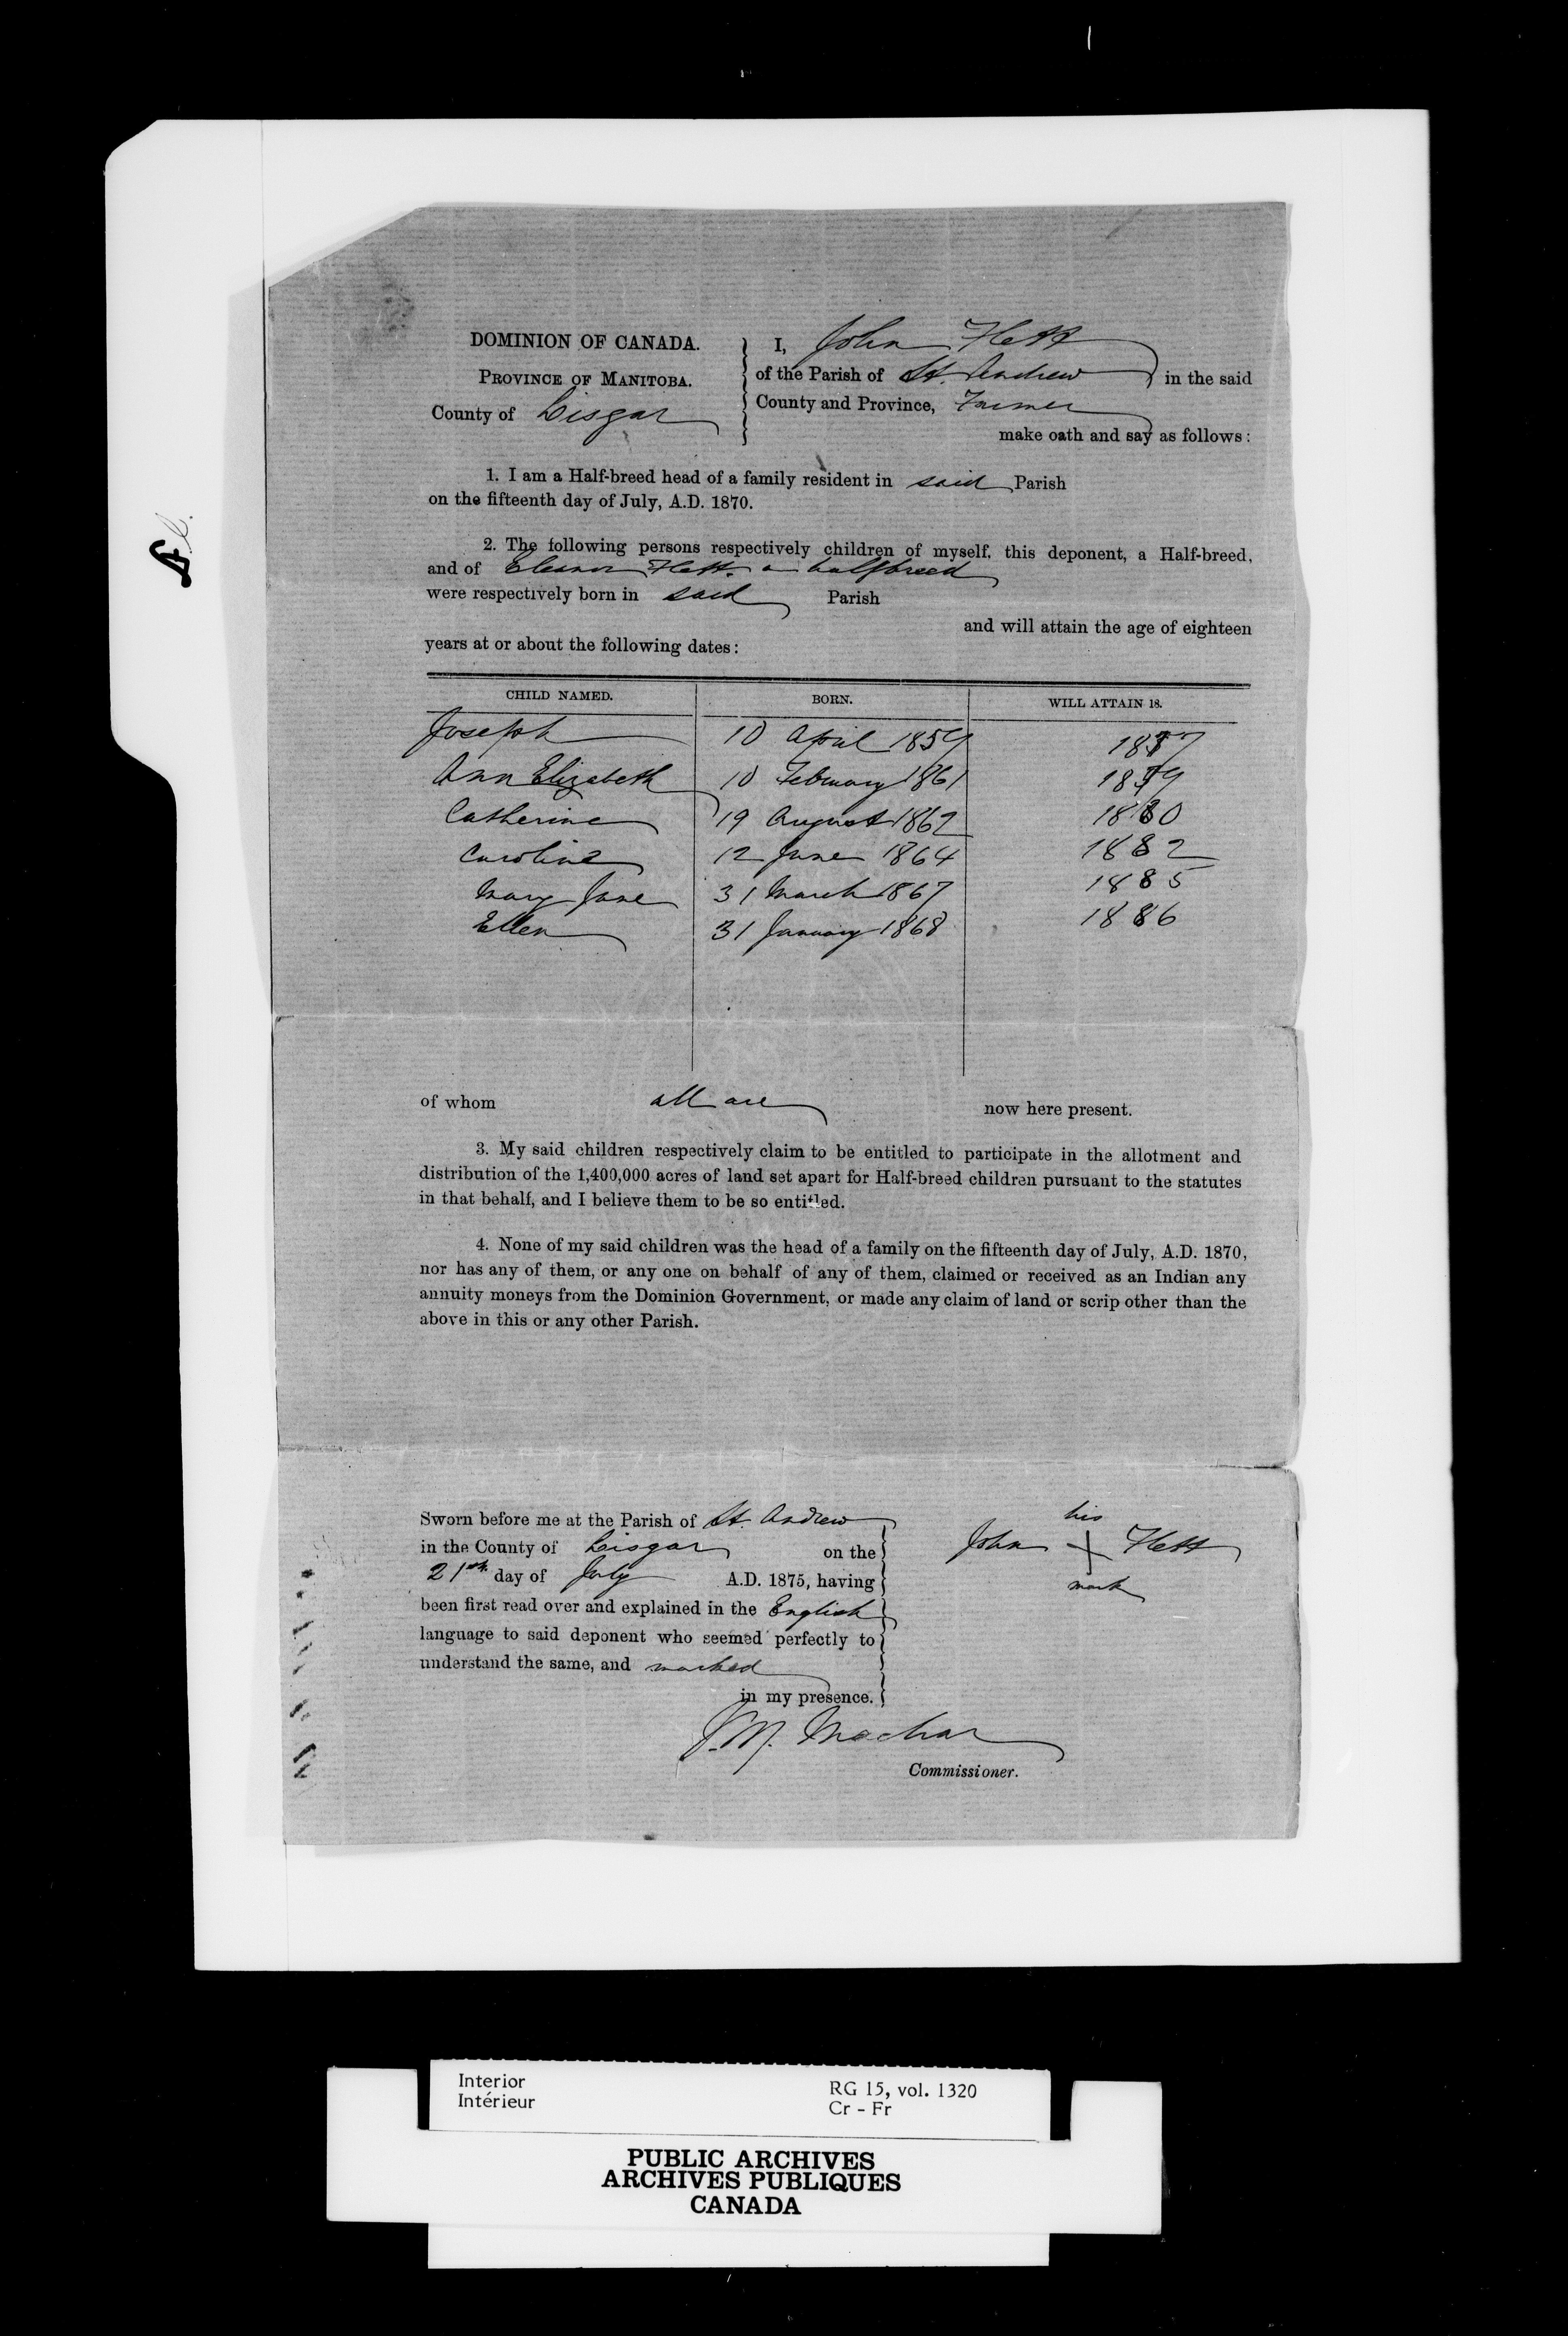 DOMINION OF CANADA.
PROVINCE OF MANITOBA.
County of Lisgar
I, John Flett
of the Parish of St. Andrew in the said
County and Province, Farmer
make oath and say as follows:
1. I am a Half-breed head of a family resident in said Parish
on the fifteenth day of July, A.D. 1870.
2. The following persons respectively children of myself, this deponent, a Half-breed,
and of Eleanor Flett. a halfbreed
were respectively born in said Parish
and will attain the age of eighteen
years at or about the following dates:
CHILD NAMED. BORN. WILL ATTAIN 18.
Joseph 10 April 1859 1877
Ann Elizabeth 10 February 1861 1879
Catherine 19 August 1862 1880
Caroline 12 June 1864 1882
Mary Jane 31 March 1867 1885
Ellen 31 January 1868 1886
of whom all are now here present.
3. My said children respectively claim to be entitled to participate in the allotment and
distribution of the 1,400,000 acres of land set apart for Half-breed children pursuant to the statutes
in that behalf, and I believe them to be so entitled.
4. None of my said children was the head of a family on the fifteenth day of July, A.D. 1870,
nor has any of them, or any one on behalf of any of them, claimed or received as an Indian any
annuity moneys from the Dominion Government, or made any claim of land or scrip other than the
above in this or any other Parish.
Sworn before me at the Parish of St. Andrew
in the County of Lisgar on the
21st day of July A.D. 1875, having
been first read over and explained in the English
language to said deponent who seemed perfectly to
understand the same, and marked
in my presence.
his
John + Flett
mark
J.M. Machar
Commissioner.
Interior
Intérieur
RG 15, vol. 1320
Cr - Fr
PUBLIC ARCHIVES
ARCHIVES PUBLIQUES
CANADA